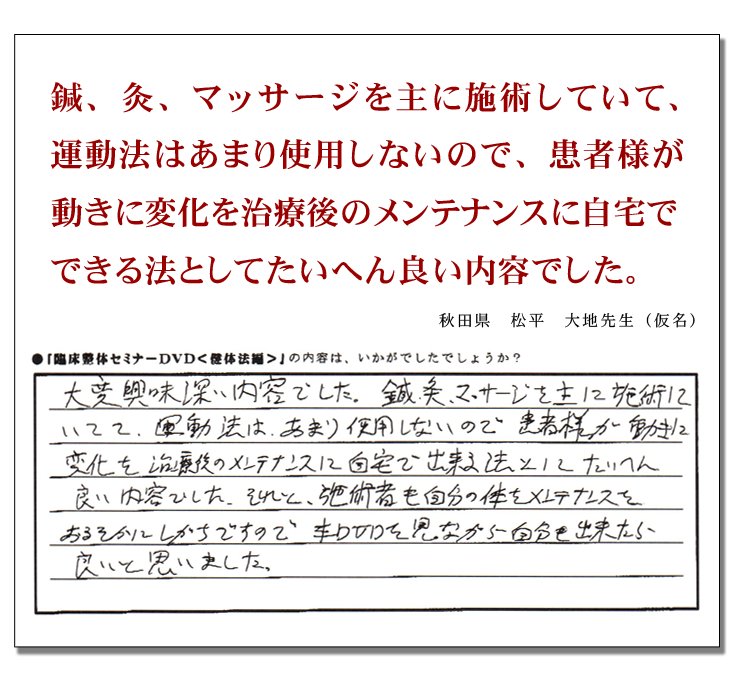 鍼、灸、マッサージを主に施術していて、
運動法はあまり使用しないので、患者様が
動きに変化を治療後のメンテナンスに自宅で
できる法としてたいへん良い内容でした。
秋田県 松平 大地先生（仮名）
●「臨床整体セミナーDVD＜健体法編＞」の内容は、いかがでしたでしょうか？
大変興味深い内容でした。鍼、灸、マッサージを主に施術して
いてて、運動法は、あまり使用しないので 患者様が動きに
変化を治療後のメンテナンスに自宅で出来る法として たいへん
良い内容でした。それと、施術者も自分の体をメンテナンスを
おろそかにしがちですので 本DVDを見ながら自分も出来たら
良いと思いました。